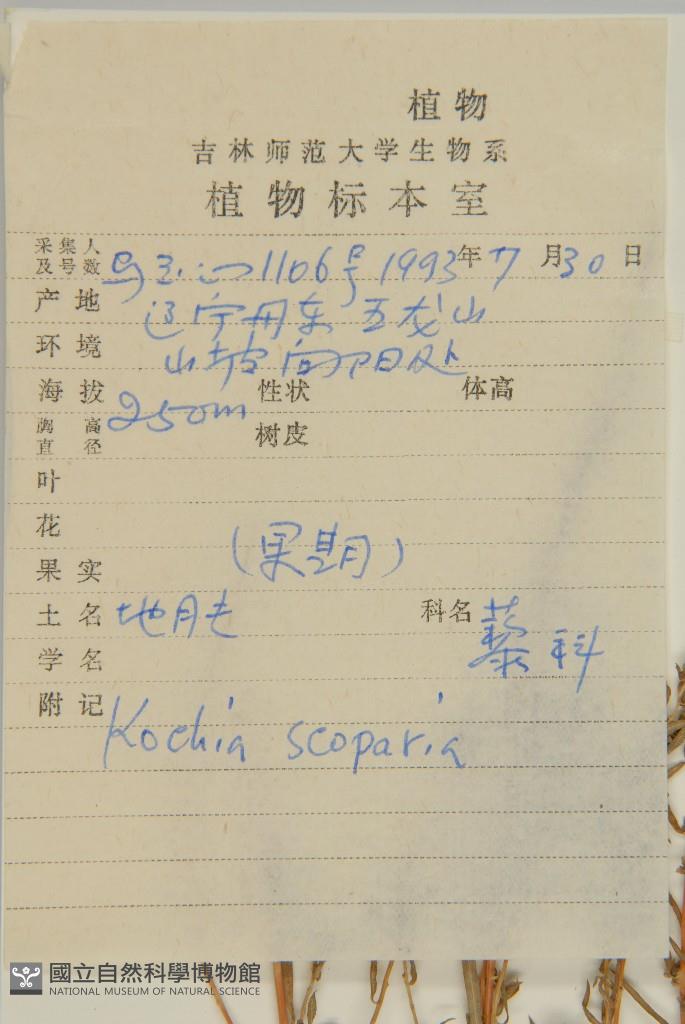 植物
吉林师范大学生物系
植物标本室
采集人
及号数 1106号 1993年7月30日
产地 辽宁丹东 五龙山
环境 山坡向阳处
海拔 250m 性状 体高
胸高
直径 树皮
叶
花
果实 (果期)
土名 地肤 科名 藜科
学名
附记 Kochia scoparia
國立自然科學博物館
NATIONAL MUSEUM OF NATURAL SCIENCE